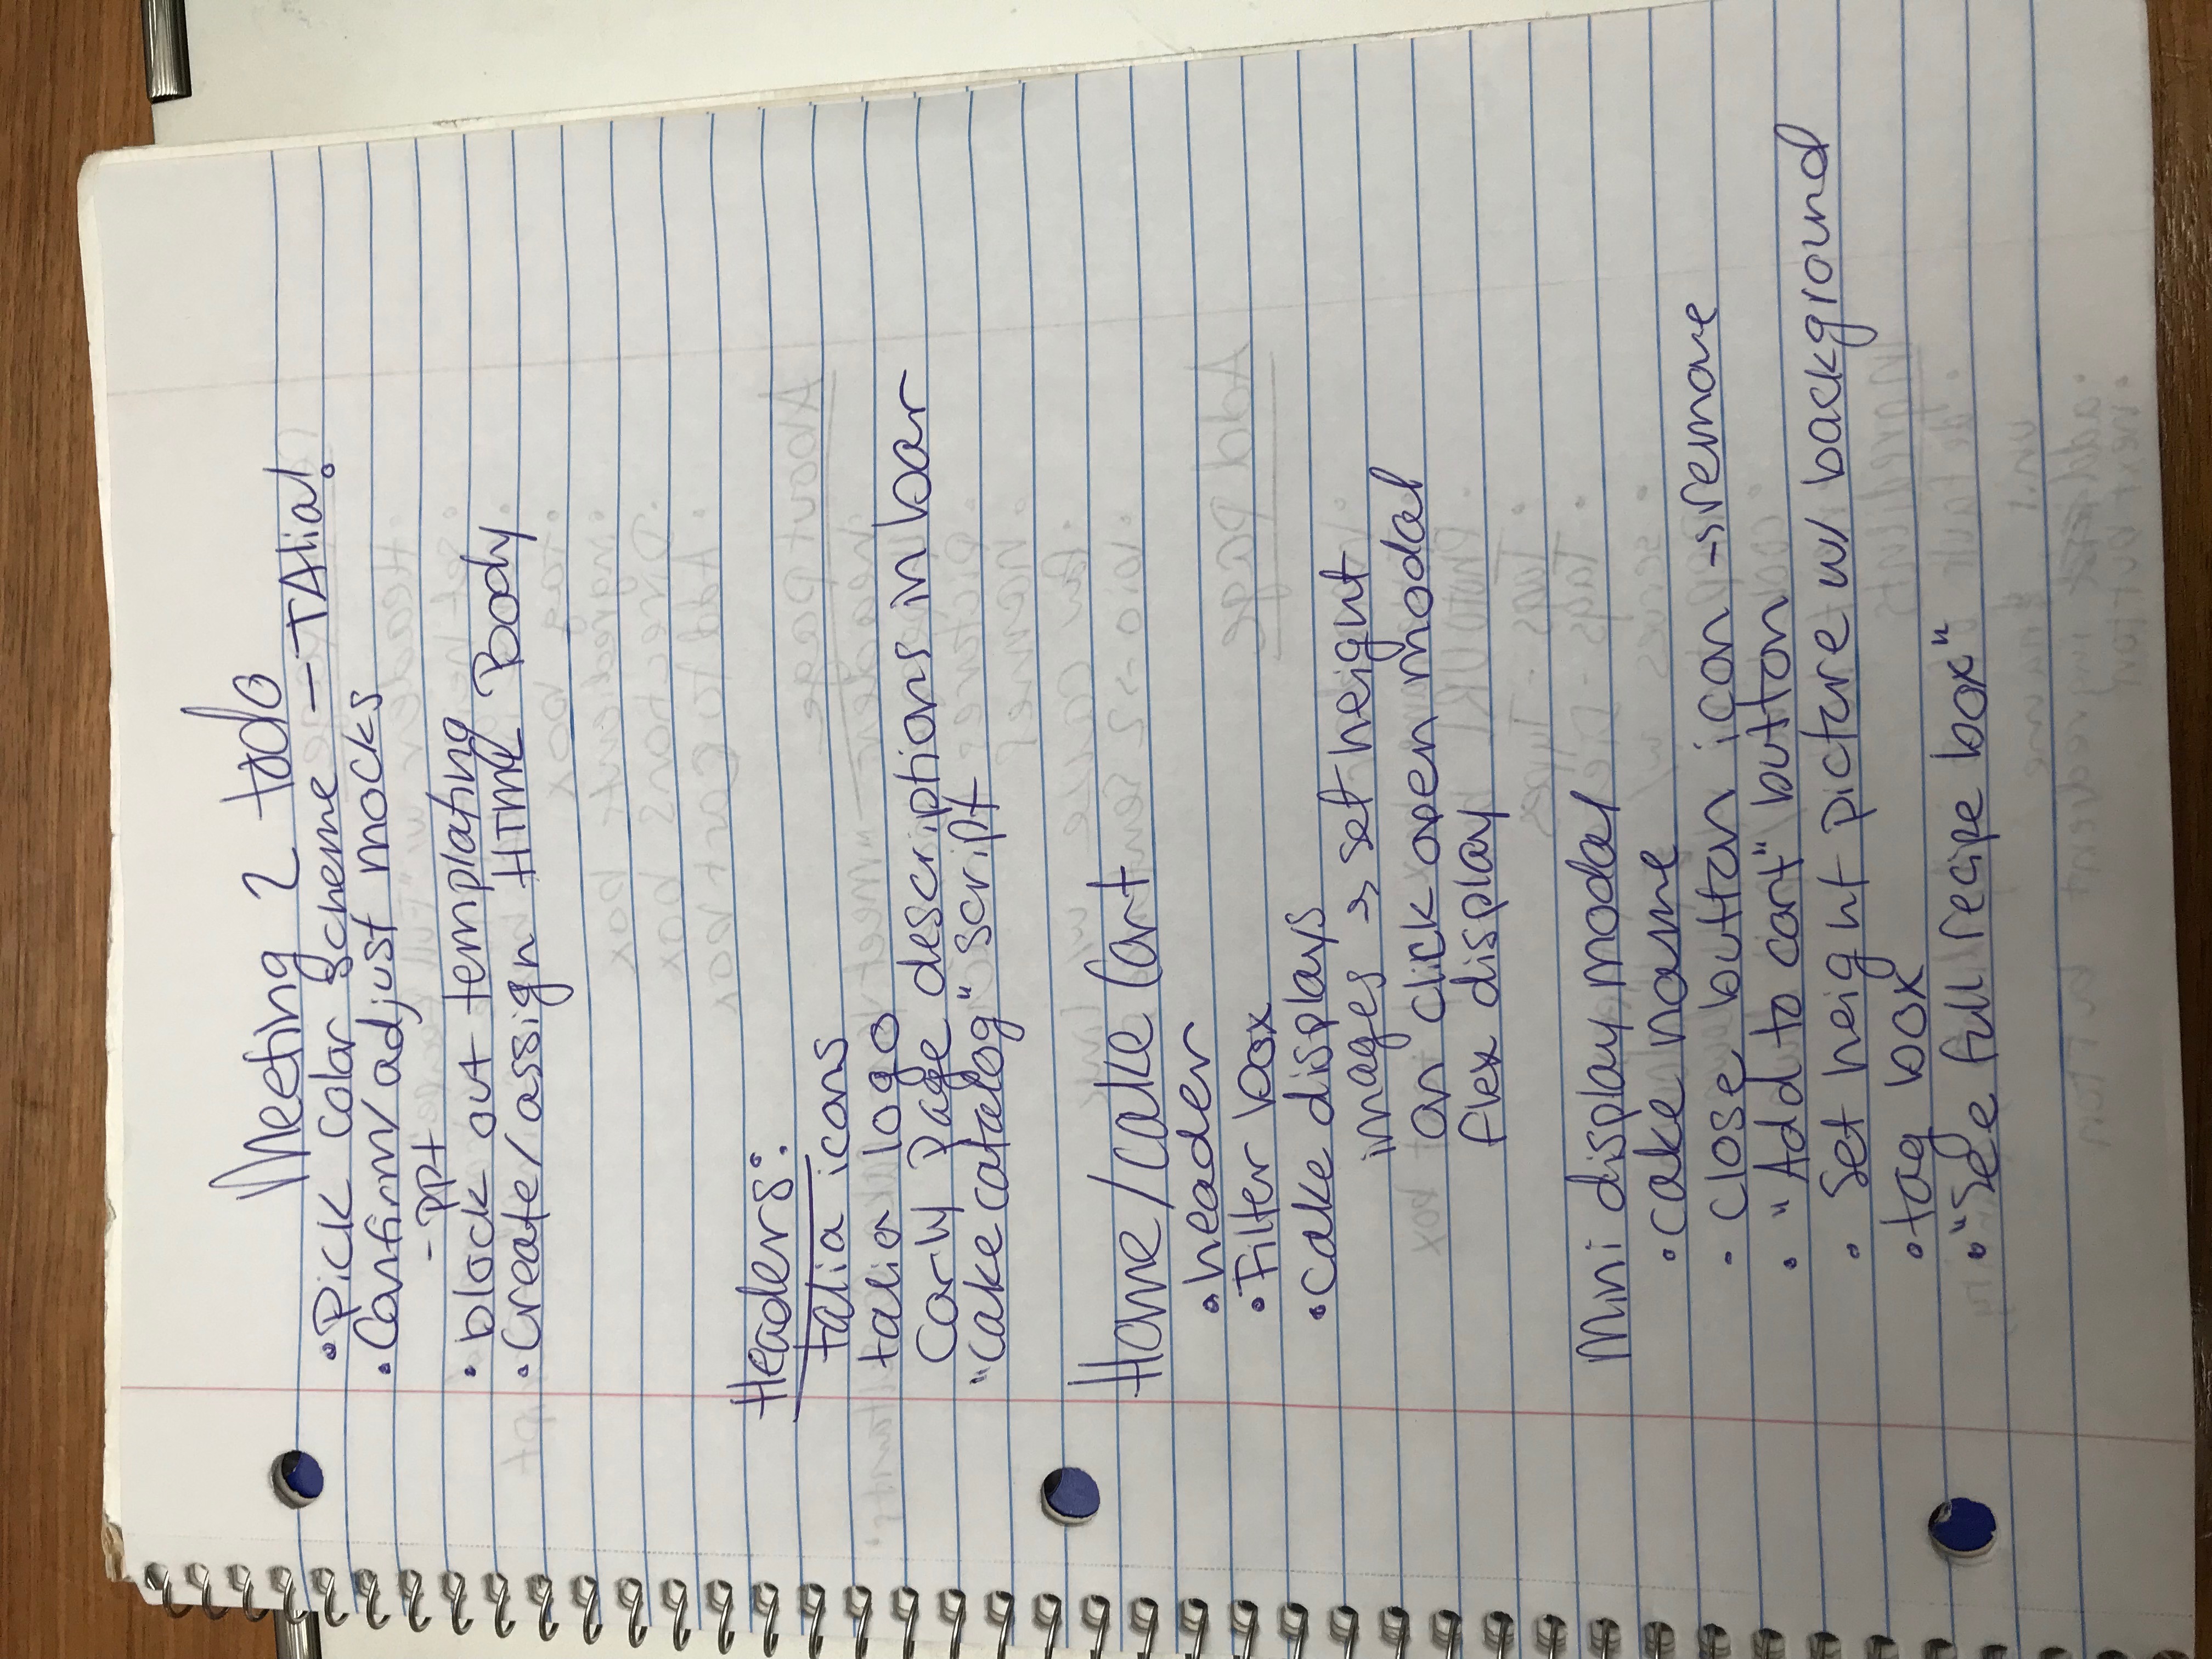 Meeting 2 todo
• Pick Color scheme — TAlia!
• Confirm/adjust mocks
- PPt
• block out templating
• Create/assign HTML Body
Headers:
talia icons
talia logo
Carly Page descriptions in bar
"cake catalog" script
Home/cake Cart
• header
• Filter box
• cake displays
images → set height
on click open modal
flex display
Mini display modal
• cake name
• close button icon → remove
• "Add to cart" button
• Set height picture w/ background
• tag box
• "See full recipe box"